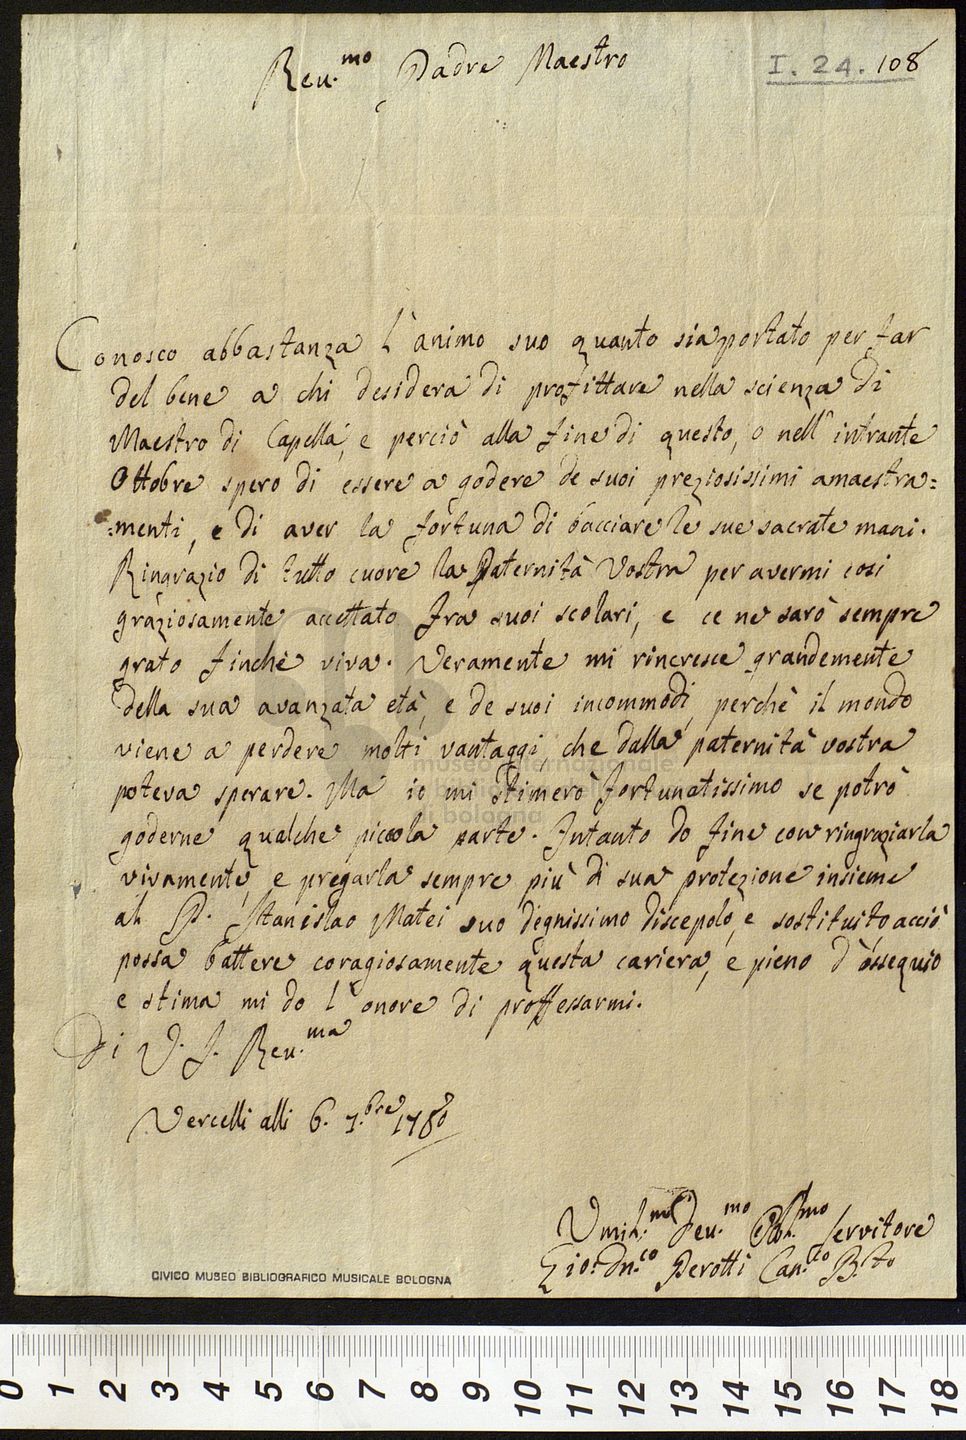 Rev.mo Padre Maestro
I. 24. 108
Conosco abbastanza l'animo suo quanto sia portato per far
del bene a chi desidera di profittare nella scienza di
Maestro di Capella, e perciò alla fine di questo, o nell'intrante
Ottobre spero di essere a godere de suoi preziosissimi amaestra=
=menti, e di aver la fortuna di bacciare le sue sacrate mani.
Ringrazio di tutto cuore la Paternità Vostra per avermi così
graziosamente accettato fra suoi scolari, e ce ne sarò sempre
grato finchè viva. Veramente mi rincresce grandemente
della sua avanzata età, e de suoi incommodi, perchè il mondo
viene a perdere molti vantaggi, che dalla paternità vostra
poteva sperare. Ma io mi stimerò fortunatissimo se potrò
goderne qualche piccola parte. Intanto do fine con ringraziarla
vivamente, e pregarla sempre più di sua protezione insieme
al P. Stanislao Matei suo degnissimo discepolo, e sostituito acciò
possa battere coragiosamente questa cariera, e pieno d'ossequio
e stima mi do l'onore di proffessarmi.
Di V. P. Rev.ma
Vercelli alli 6. 7.bre 1780
Umil.mo Dev.mo Obl.mo Servitore
Gio: Dn.co Perotti Can.co B.to
CIVICO MUSEO BIBLIOGRAFICO MUSICALE BOLOGNA
museo internazionale
di bologna
0 1 2 3 4 5 6 7 8 9 10 11 12 13 14 15 16 17 18